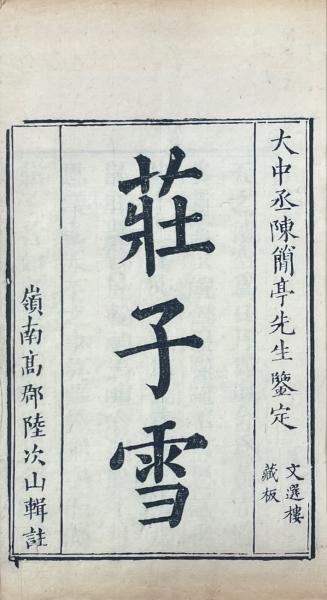 大中丞陳簡亭先生鑒定
文選樓
藏板
莊子雪
嶺南高郡陸次山輯註